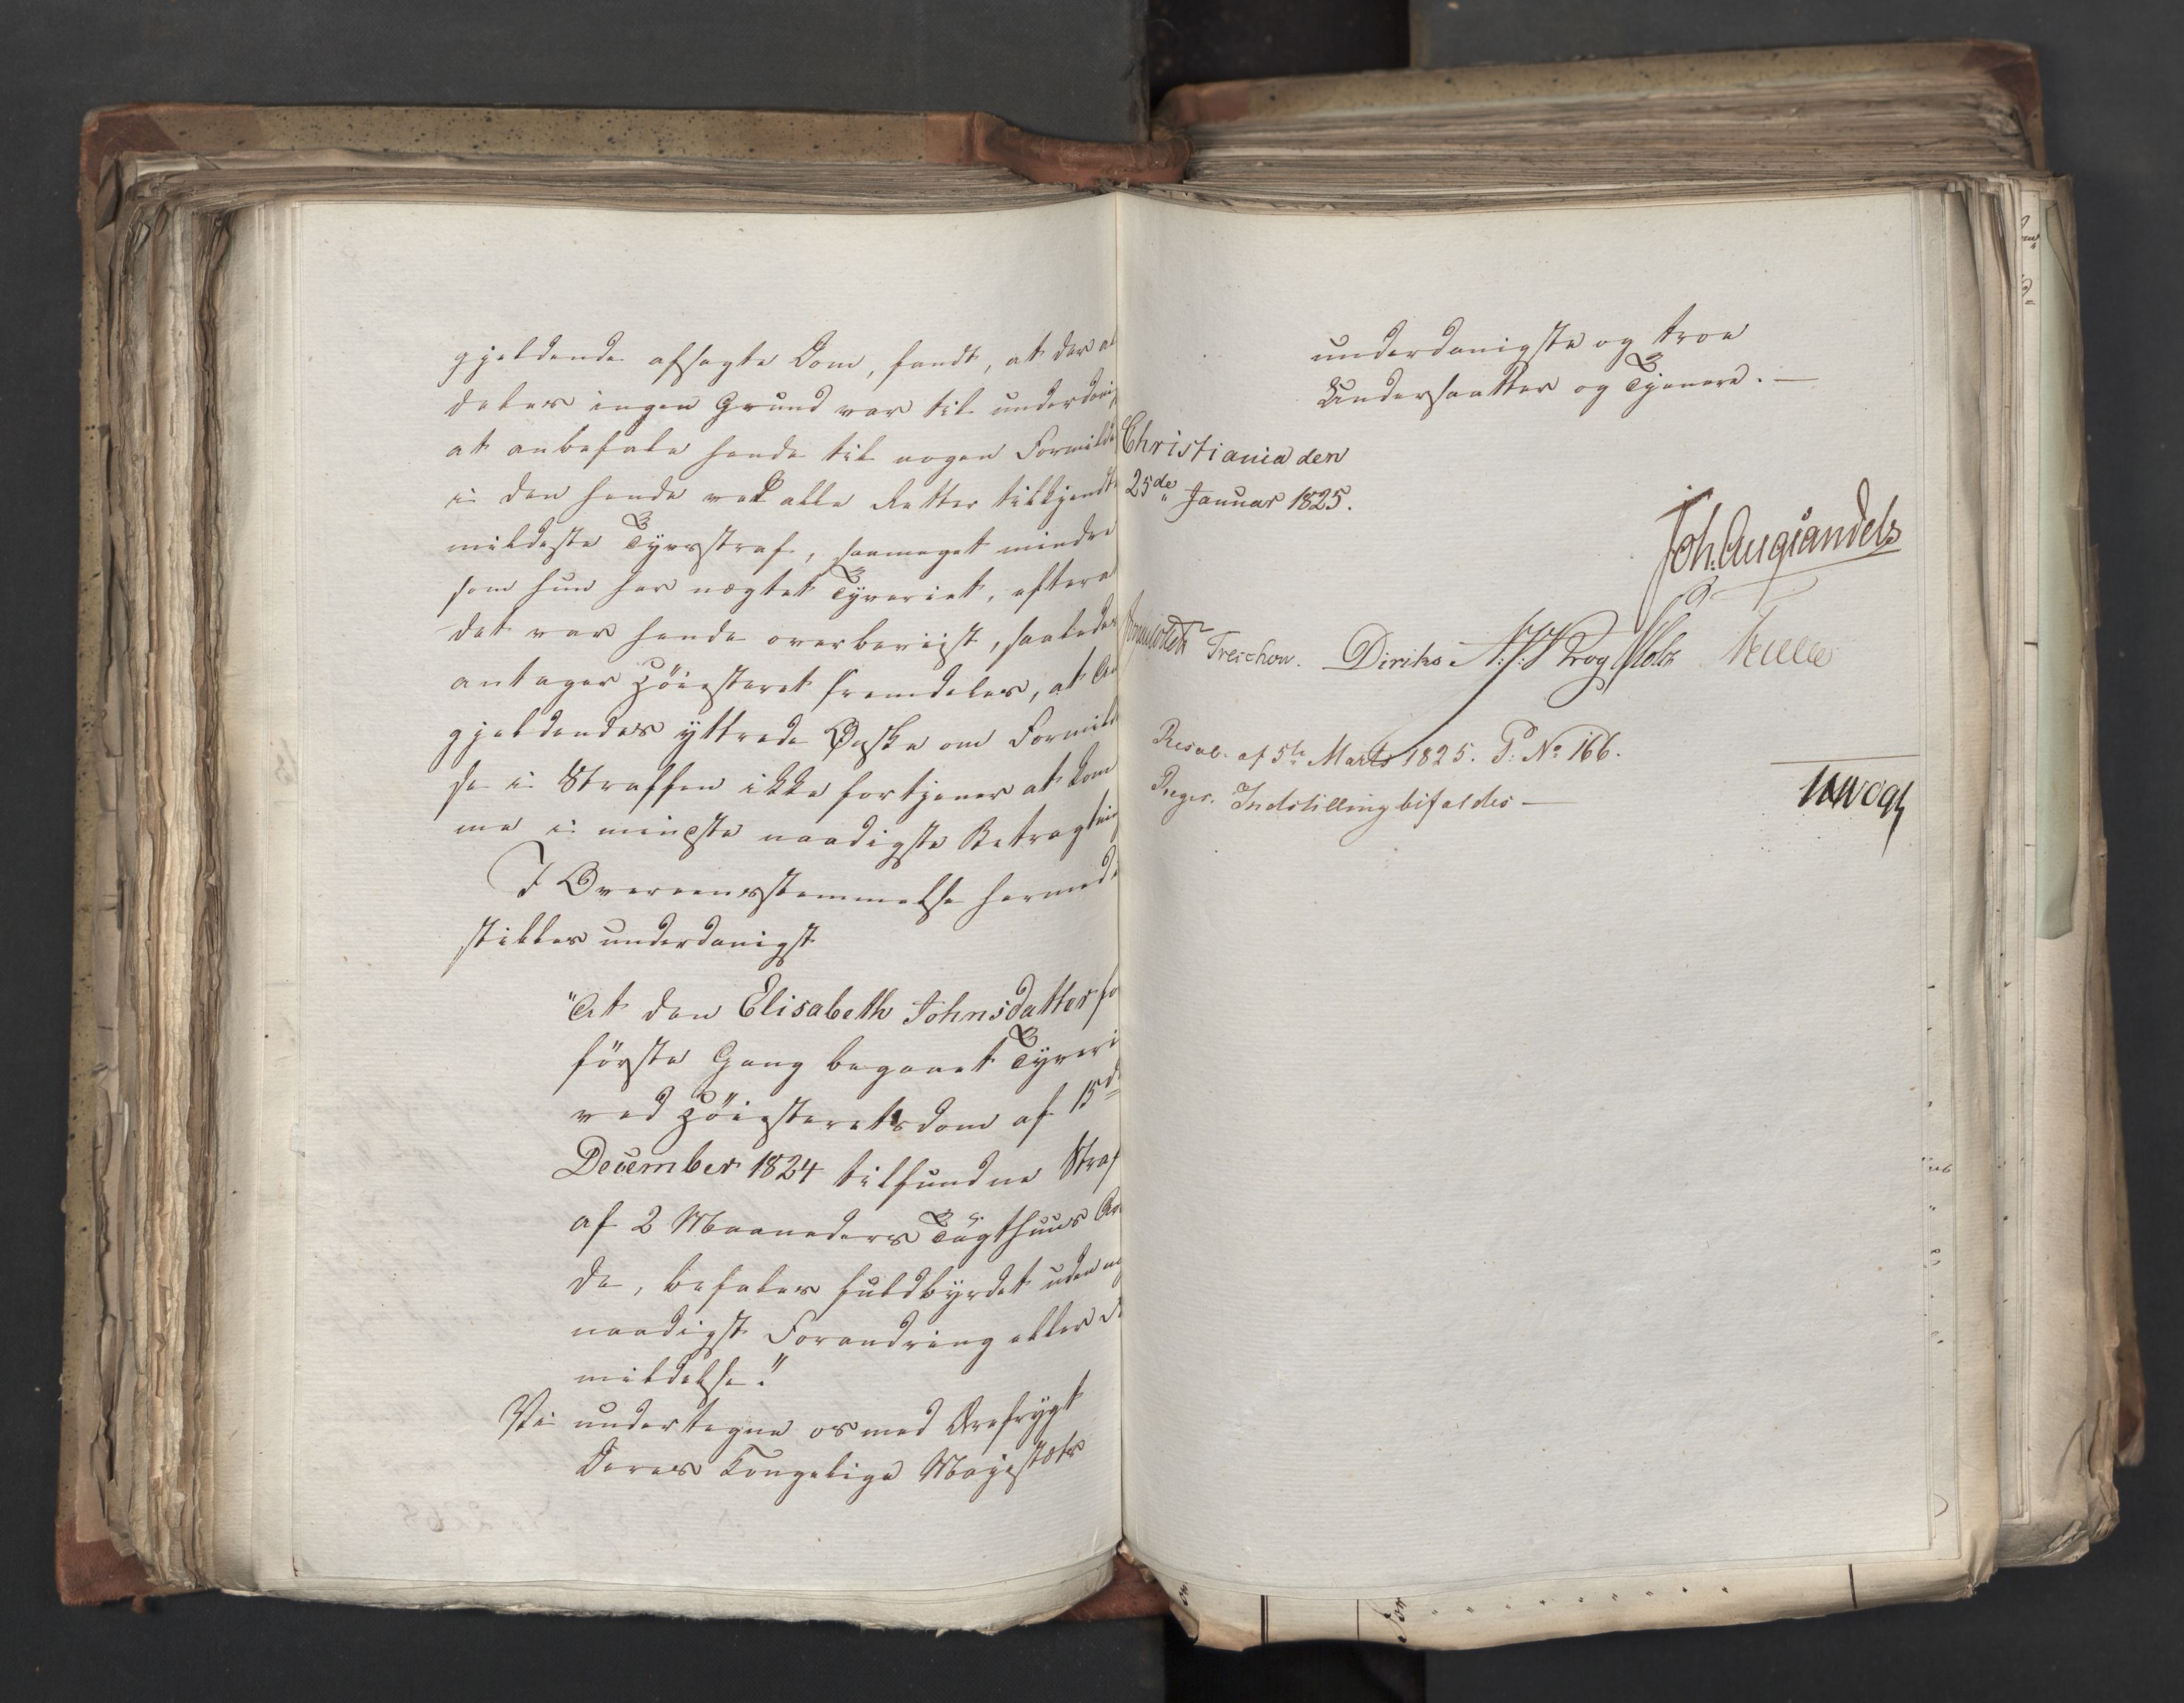 gjeldende afsagte Dom, fandt, at der al
deles ingen Grund var til underdanig
at anbefale hende til nogen Formild
i den hende ved alle Retter tilkjendte
mildeste Tyvsstraf, saameget mindre
som hun har nægtet Tyveriet, efterat
det var hende overbeviist, saaledes
antager Höiesteret fremdeles, at An
gjeldendes yttrede Ønske om Formild
se i Straffen ikke fortjener at kom
me i mindste naadigste Betragtning
I Overeensstemmelse hermed i
stilles underdanigst
"At den Elisabeth Johnsdatter fo
förste Gang begaaet Tyveri
ved Höiesteretsdom af 15de
December 1824 tilfundne Straf
af 2 Maaneders Tugthuus Ar
de, befales fuldbyrdet uden no
naadigst Forandring eller
mildelse."
Vi undertegne os med Ærefrygt
Deres Kongelige Majestæts
underdanigste og troe
Undersaatter og Tjenere. —
Christiania den
25de Januar 1825.
Joh. Aug. Sandels
Sommerhielm Treschow. Diriks. Krog Holst
Resol. af 5te Marts 1825. P: No 166.
Reger. Indstilling bifaldes —